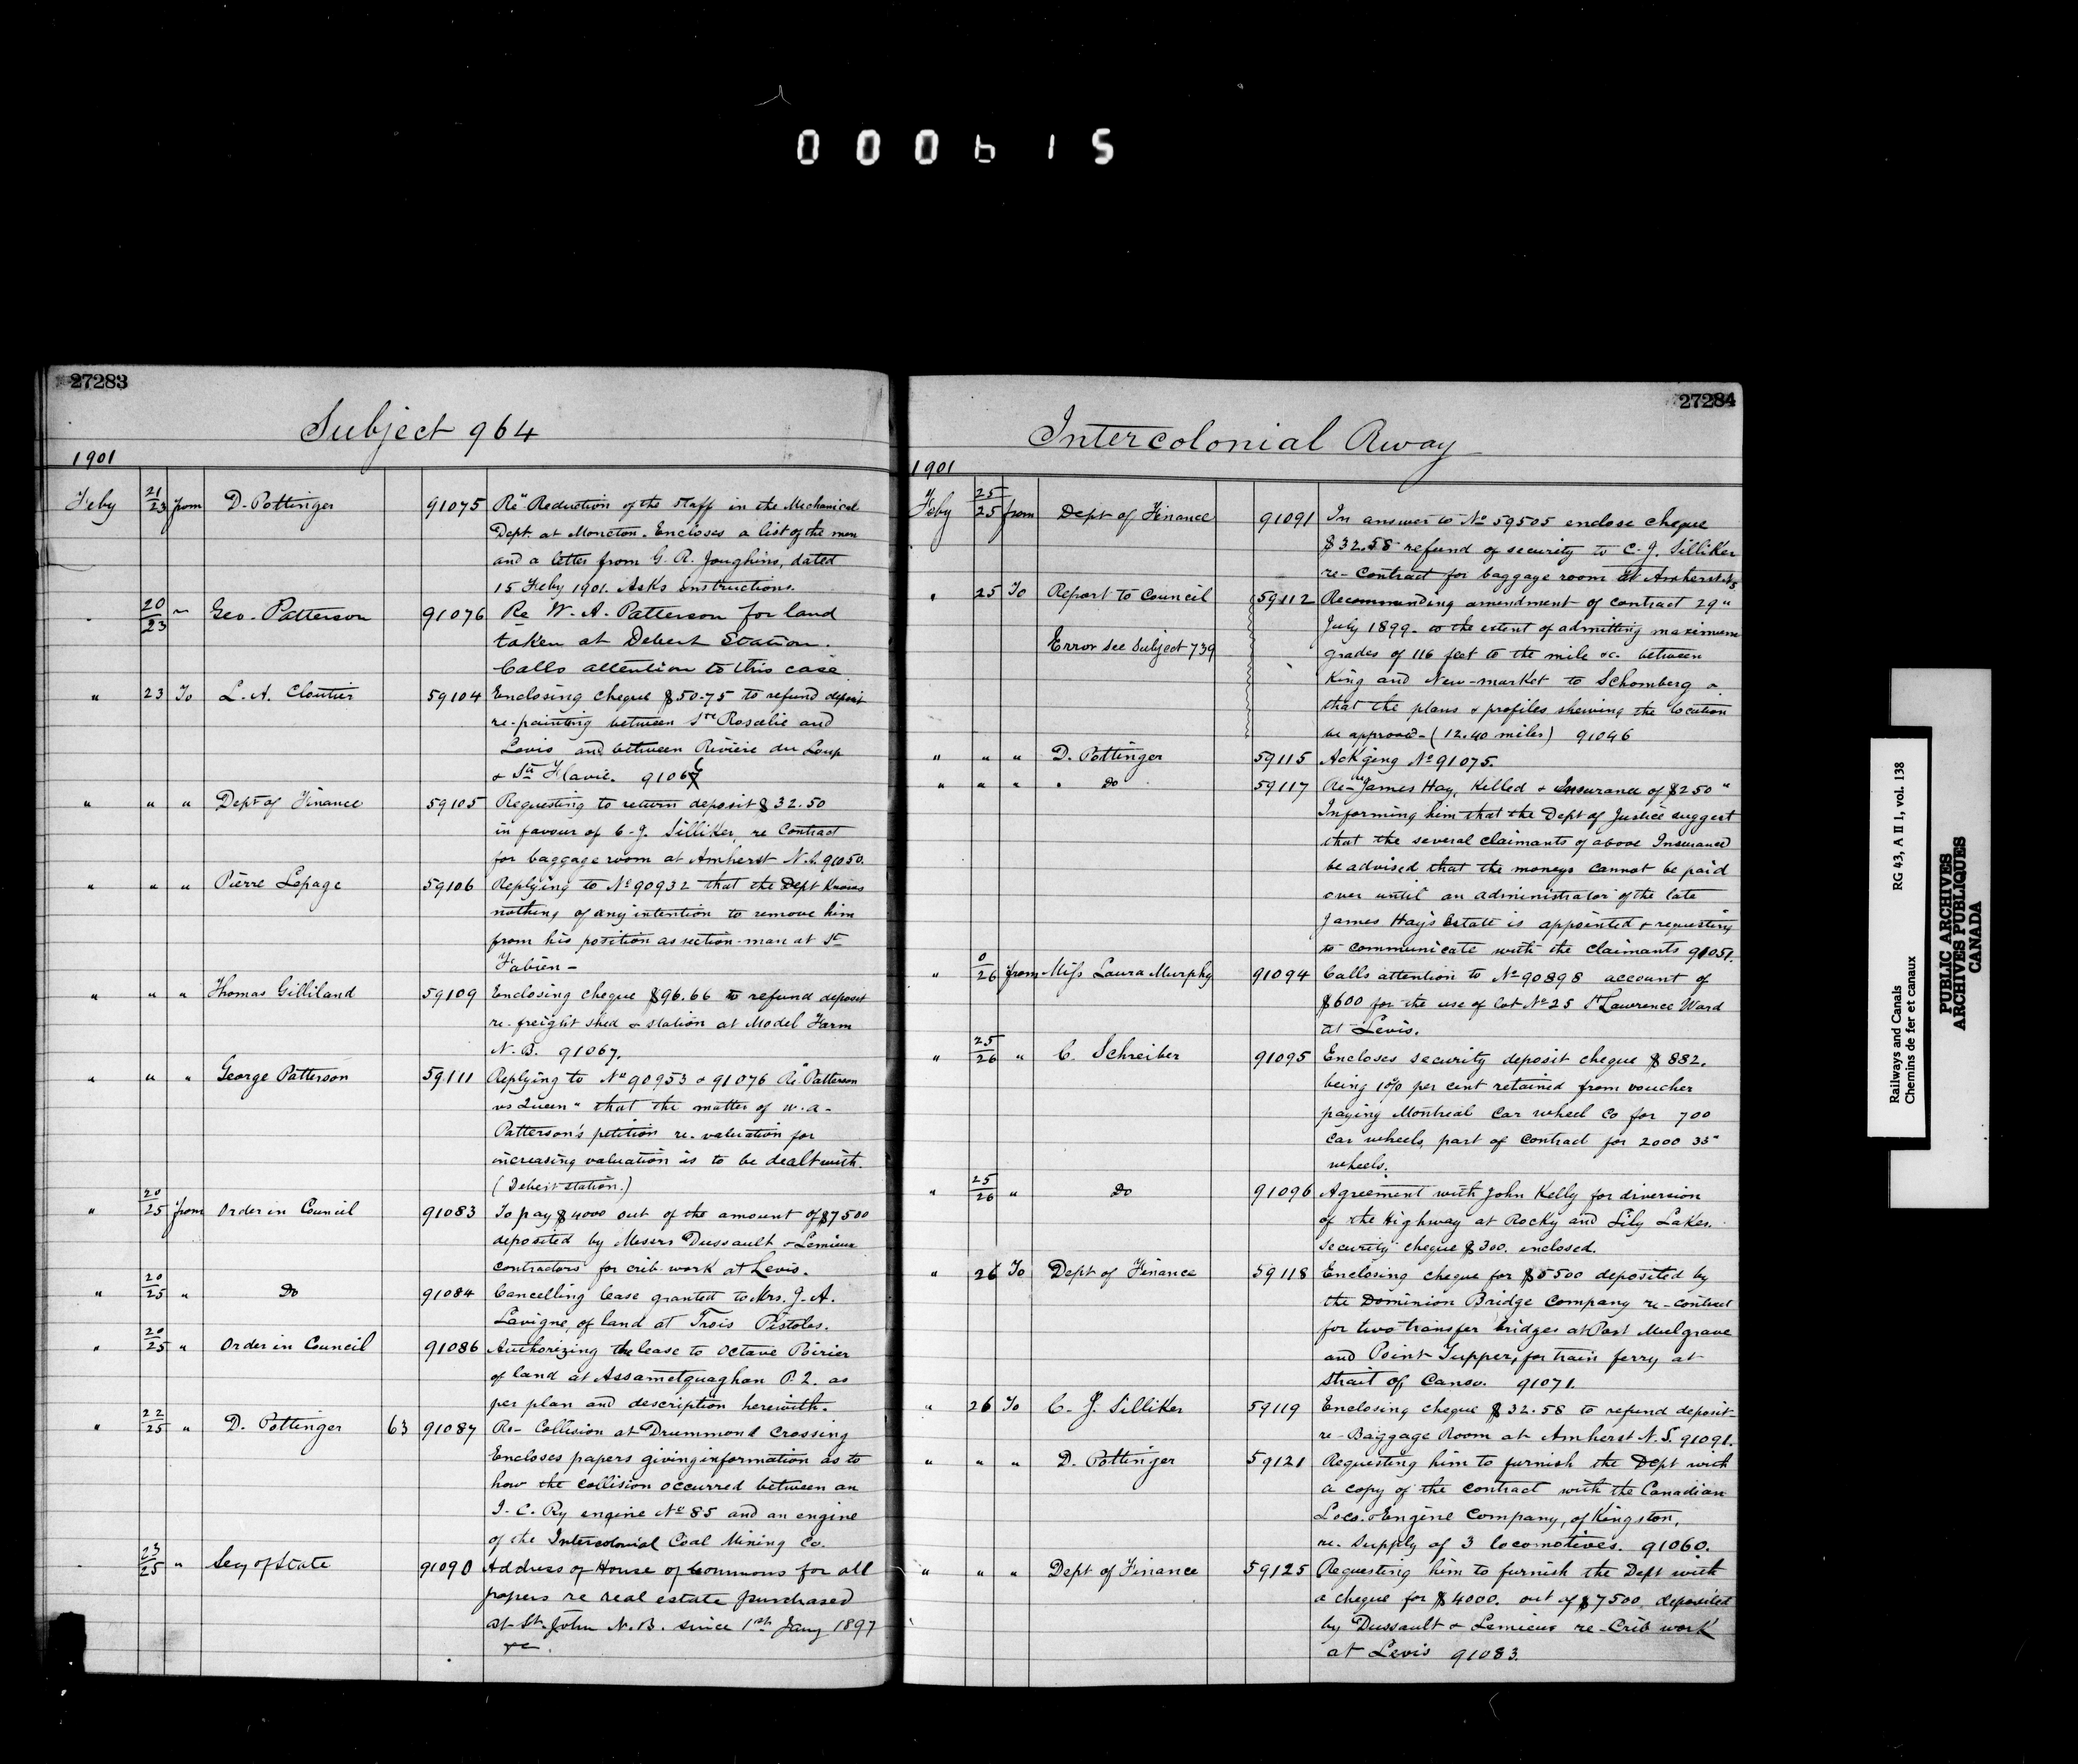 000615
27283
Subject 964
1901
Feby 21/23 from D. Pottinger 91075 Re "Reduction of the staff in the Mechanical
Dept. at Moncton. Encloses a list of the men
and a letter from G. R. Joughins, dated
15 Feby 1901. Asks instructions.
" 20/23 " Geo. Patterson 91076 Re W. A. Patterson for land
taken at Debert Station.
Calls attention to this case
" 23 To L. A. Cloutier 59104 Enclosing cheque $50.75 to refund deposit
re-painting between Ste Rosalie and
Levis and between Rivière du Loup
& Ste Flavie.
" " " Dept of Finance 59105 Requesting to return deposit $32.50
in favour of C. J. Silliker, re Contract
for baggage room at Amherst N.S. 91050.
" " " Pierre Lepage 59106 Replying to No 90932 that the Dept knows
nothing of any intention to remove him
from his position as section-man at St
Fabien -
" " " Thomas Gilliland 59109 Enclosing cheque $96.66 to refund deposit
re-freight shed & station at Model Farm
N.B. 91067.
" " " George Patterson 59111 Replying to No 90953 & 91076 Re "Patterson
vs Queen" that the matter of W. A.
Patterson's petition re-valuation for
increasing valuation is to be dealt with.
(Debert station.)
" 20/25 from Order in Council 91083 To pay $4000 out of the amount of $7500
deposited by Messrs Dussault & Lemieux
contractors for crib-work at Levis.
" 20/25 " Do 91084 Cancelling lease granted to Mrs. J. A.
Lavigne, of land at Trois Pistoles.
" 20/25 " Order in Council 91086 Authorizing the lease to Octave Poirier
of land at Assametquaghan P.Q. as
per plan and description herewith.
" 22/25 " D. Pottinger 63 91087 Re- Collision at Drummond Crossing
Encloses papers giving information as to
how the collision occurred between an
I. C. Ry engine No 85 and an engine
of the Intercolonial Coal Mining Co.
23/25 " Secy of State 91090 Address of House of Commons for all
papers re real estate purchased
at St. John N.B. since 1st Jany 1897
&c.
27284
Intercolonial Rway
1901
Feby 25/25 from Dept of Finance 91091 In answer to No 59505 enclose cheque
$32.58 refund of security to C. J. Silliker
re-Contract for baggage room at Amherst N.S
" 25 To Report to Council 59112 Recommending amendment of contract 29"
July 1899. to the extent of admitting maximum
Error see Subject 739 grades of 116 feet to the mile &c. between
King and New-market to Schomberg &
that the plans & profiles shewing the location
be approved - (12.40 miles) 91046
" " " D. Pottinger 59115 Ack'ging No 91075.
" " " " Do 59117 Re-"James Hay, killed & Insurance of $250"
Informing him that the Dept of Justice suggest
that the several claimants of above Insurance
be advised that the moneys cannot be paid
over until an administrator of the late
James Hay's Estate is appointed & requesting
to communicate with the claimants 91051.
" 0/26 from Miss Laura Murphy 91094 Calls attention to No 90898 account of
$600 for the use of lot No 25 St Lawrence Ward
at Levis.
" 25/26 " C. Schreiber 91095 Encloses security deposit cheque $882.
being 10% per cent retained from voucher
paying Montreal Car wheel Co for 700
car wheels, part of contract for 2000 33"
wheels.
" 25/26 " Do 91096 Agreement with John Kelly for diversion
of the Highway at Rocky and Lily Lakes.
Security cheque $300. enclosed.
" 26 To Dept of Finance 59118 Enclosing cheque for $5500 deposited by
the Dominion Bridge Company re-contract
for two transfer bridges at Port Mulgrave
and Point Tupper, for train ferry at
Strait of Canso. 91071.
" 26 To C. J. Silliker 59119 Enclosing cheque $32.58 to refund deposit-
re-Baggage Room at Amherst N.S. 91091.
" " " D. Pottinger 59121 Requesting him to furnish the Dept with
a copy of the contract with the Canadian
Loco. & Engine Company, of Kingston,
re. Supply of 3 locomotives. 91060.
" " " Dept of Finance 59125 Requesting him to furnish the Dept with
a cheque for $4000. out of $7500 deposited
by Dussault & Lemieux re-Crib work
at Levis 91083.
Railways and Canals RG 43, A II 1, vol. 138
Chemins de fer et canaux
PUBLIC ARCHIVES
ARCHIVES PUBLIQUES
CANADA